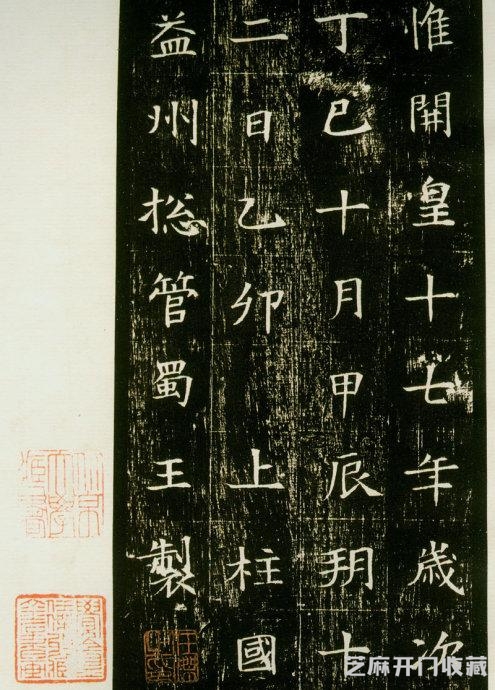 惟開皇十七年歲次
丁巳十月甲辰朔十
二日乙卯上柱國
益州揔管蜀王製
芝麻开门收藏